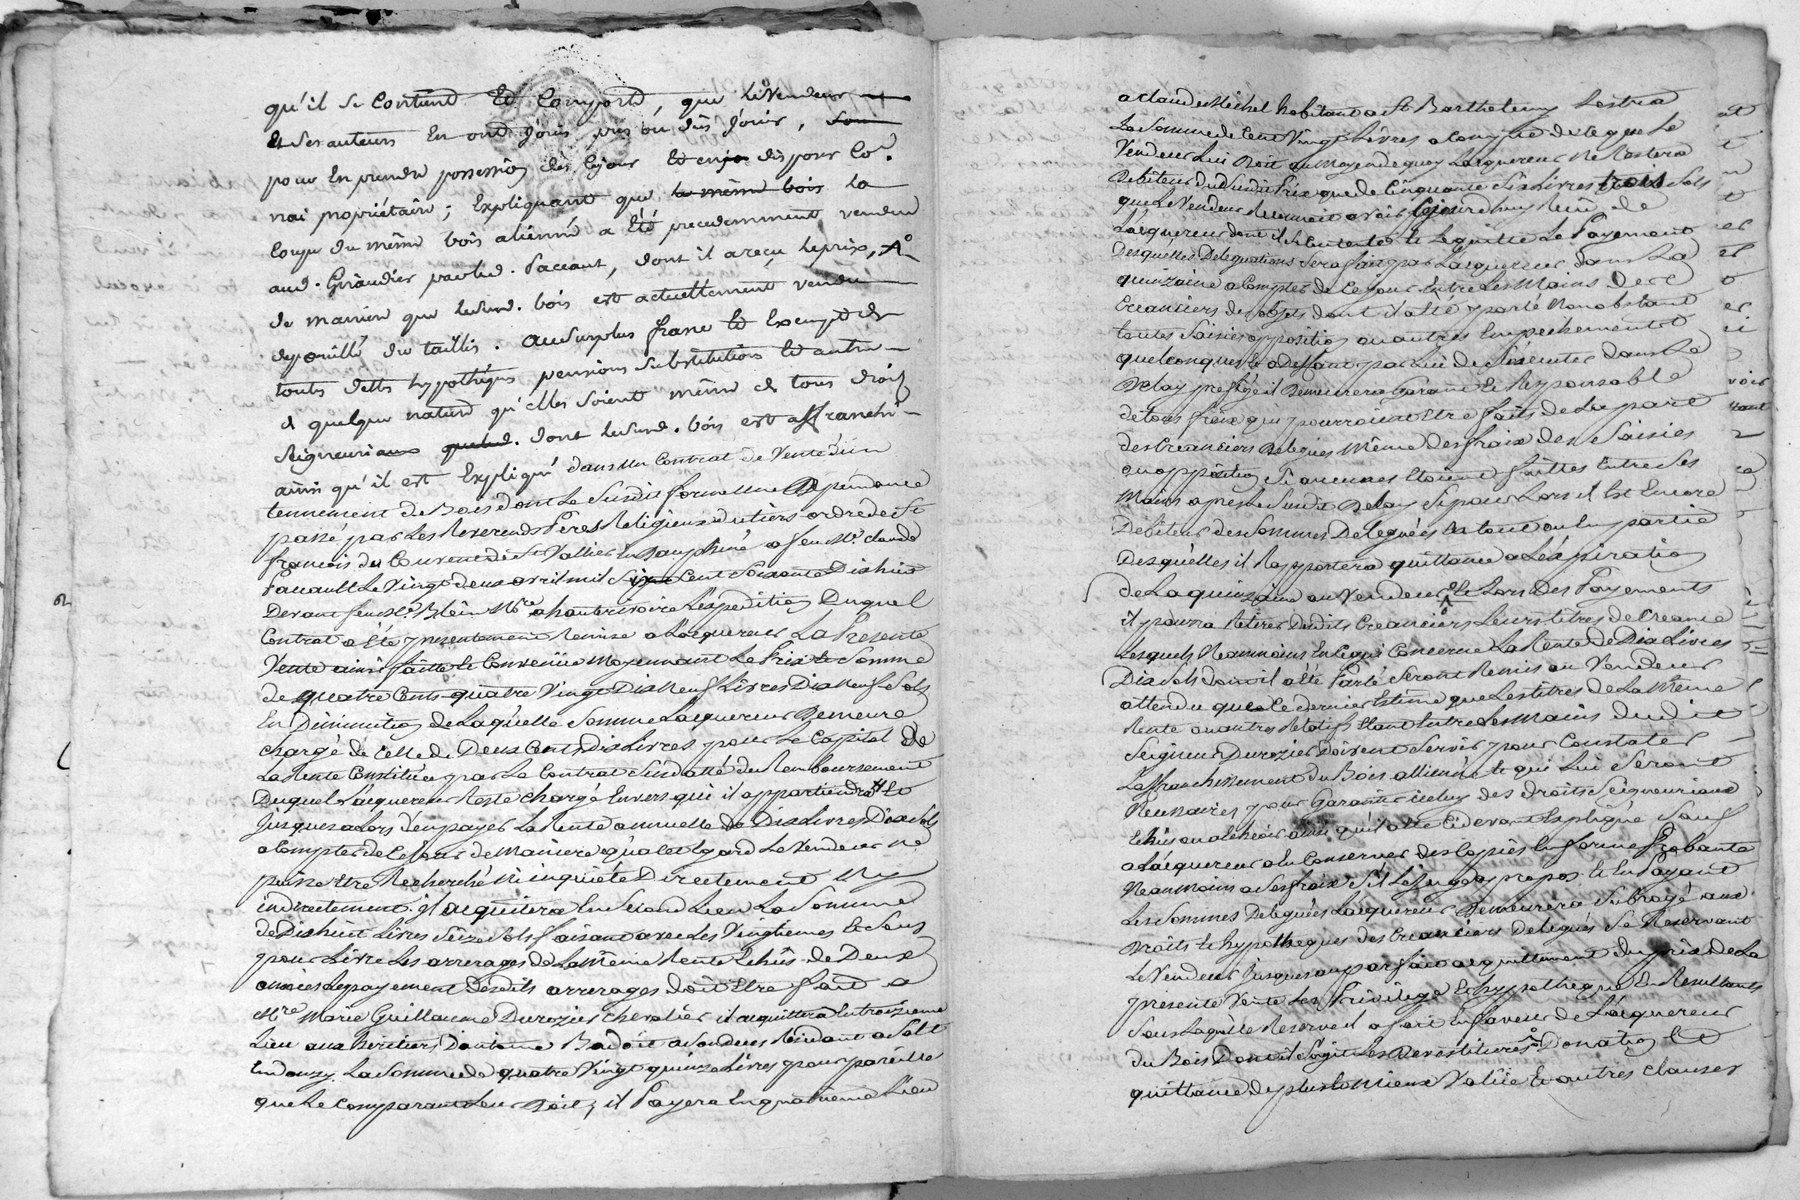 qu'il se Contient Et Comporte, que le Vendeur
Et ses auteurs En ont Joüis pus ou dûs Joüir,
pour En prendre possession dès cejour Et en disposer Co.e
vrai propriétaire; Expliquant que la
Coupe du même bois aliénné a Eté precedemment vendue
aud. Giraudier par led. Faccaut, dont il a reçu le prix,
de maniere que lesusd. bois est actuellement vendu
depoüillé du taillis. au Surplus franc Et Exempt de
toutes dettes hypothéques pensions Substitutions Et autres
de quelque nature qu'elles soient même de tous droits
Seigneuriaux dont lesusd. bois est affranchi
ainsi qu'il est Expliqué dans un Contrat de Vente d'un
tennement de Bois dont Le Susdit forme une Dépendance
passé par Les Reverends Peres Religieux du tiers ordre de St
françois du Couvent de St Vallier En Dauphiné a feu Mr. Claude
Faccault Le Vingt deux avril mil Cent Soixante Dix huit
Devant feu Me. Blein N.re a hauterivoire L'expedition Duquel
Contrat a Eté presentement Remise a L'acquereur La Presente
Vente ainsi faitte Et Convenüe Moyennant Le Prix Et Somme
de quatre Cents quatre Vingt Dix Neuf Livres Dix Neuf Sols
En Diminution de Laquelle Somme L'acquereur Demeure
chargé de Celle de Deux Cents Dix Livres pour Le Capital de
La Rente Constituée par Le Contrat Susdatté du Remboursement
Duquel L'acquereur Reste chargé Envers qui il appartiendra Et
Jusques a Lors d'en payer La Rente annuelle de Dix Livres Dix Sols
a Compter de Ce Jour de Maniere qu'a Cet Egard Le Vendeur ne
puisse Etre Recherché Ni inquiété Directement Ny
indirectement. il acquitera En Second Lieu La Somme
de Dix huit Livres Seize Sols faisant avec Les Vingtiemes Et Sous
pour Livre Les arrerages de La Même Rente Echûs de Deux
années Le payement desdits arrerages doit Etre fait a
M.re Marie Guillaume Durozier chevalier il acquittera En troisieme
Lieu aux heritiers D'antoine Badoit a Résidant a St
En douzy La Somme de quatre Vingt quinze Livres pour pareille
que Le Comparant Leur Doit; il Payera En quatrieme Lieu
a Claude Michel habitant a St Barthelemy Lestra
La Somme de Cent Vingt Livres a Compte de Ce que Le
Vendeur Lui Doit au Moyen de quoy L'acquereur Ne Restera
Debiteur dudit Susdit Prix que de Cinquante Six Livres trois Sols
que Le Vendeur Reconnoit avoir Cejourd'huy Reçû de
L'acquereur dont il Se Contente Et Le quitte Le Payement
Desquelles Delegations Sera fait par L'acquereur dans La
quinzaine a Compter de Ce Jour Entre Les Mains des
Creanciers des objets dont il a Eté parlé Nonobstant
toutes Saisies opposition ou autres Empechements
quelconques Et a Deffaut par Lui de S'executer dans Le
Delay prefixé il Demeurera Garant Et Responsable
de tous fraix qui pourroient Etre faits de La part
des Creanciers Delegués Même des fraix des Saisies
ou opposition Si aucunes Etoient faittes Entre Ses
Mains apres Le Susdit Delay Si pour Lors il Est Encore
Debiteur des Sommes Deleguées En tout ou En partie
Desquelles il Rapportera quittance a L'expiration
de La quinzaine au Vendeur Et Lors Des Payements
il pourra Retirer Desdits Creanciers Leurs titres de Creance
Lesquels Neanmoins En Ce qui Concerne La Rente de Dix Livres
Dix Sols dont il a Eté Parlé Seront Remis au Vendeur
attendu que Ce dernier Estime que Les titres de La Même
Rente ou autres Relatifs Etant Entre Les Mains dudit
Seigneur Durozier Doivent Servir pour Constater
L'affranchissement du Bois allienné Et qui Lui Seront
Necessaires pour Garantir icelui des droits Seigneuriaux
Echus ou a Echeoir ainsi qu'il a Eté Cidevant Expliqué Sauf
a L'acquereur a En Conserver des Copies En forme Probante
Neanmoins a Ses fraix S'il Le Juge a propos Et En Payant
Les Sommes Deleguées L'acquereur Demeurera Subrogé aux
Droits Et hypotheques des Creanciers Delegués Se Reservant
Le Vendeur Jusques au parfait acquittement du prix de La
presente Vente Les Privilege Et hypotheque En Resultants
Sous Laquelle Reserve il a fait En faveur de L'acquereur
du Bois Dont il S'agit Les Devestitures Donation Et
quittance de plus ou Mieux Value Et autres Clauses